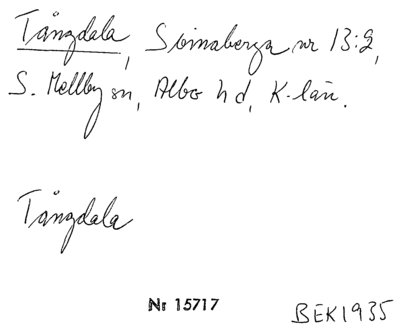 Tångdala, Svinaberga nr 13:2,
S. Mellby sn, Albo hd, K-län.
Tångdala
Nr 15717
BEK1935